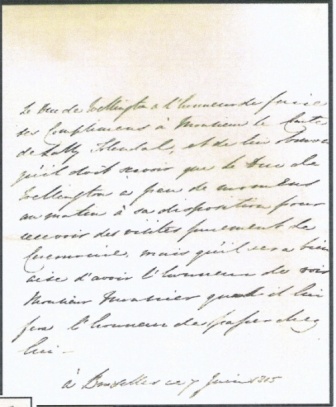 Le Duc de Wellington a l'honneur de faire
ses Complimens à Monsieur le Comte
de Lally Tolendal, et de lui
qu'il doit savoir que le Duc de
Wellington a peu de momens
au matin à sa disposition pour
recevoir des visites purement de
Ceremonie, mais qu'il sera bien
aise d'avoir l'honneur de voir
Monsieur quand il lui
fera l'honneur de passer chez
lui.
à Bruxelles ce 7 Juin 1815